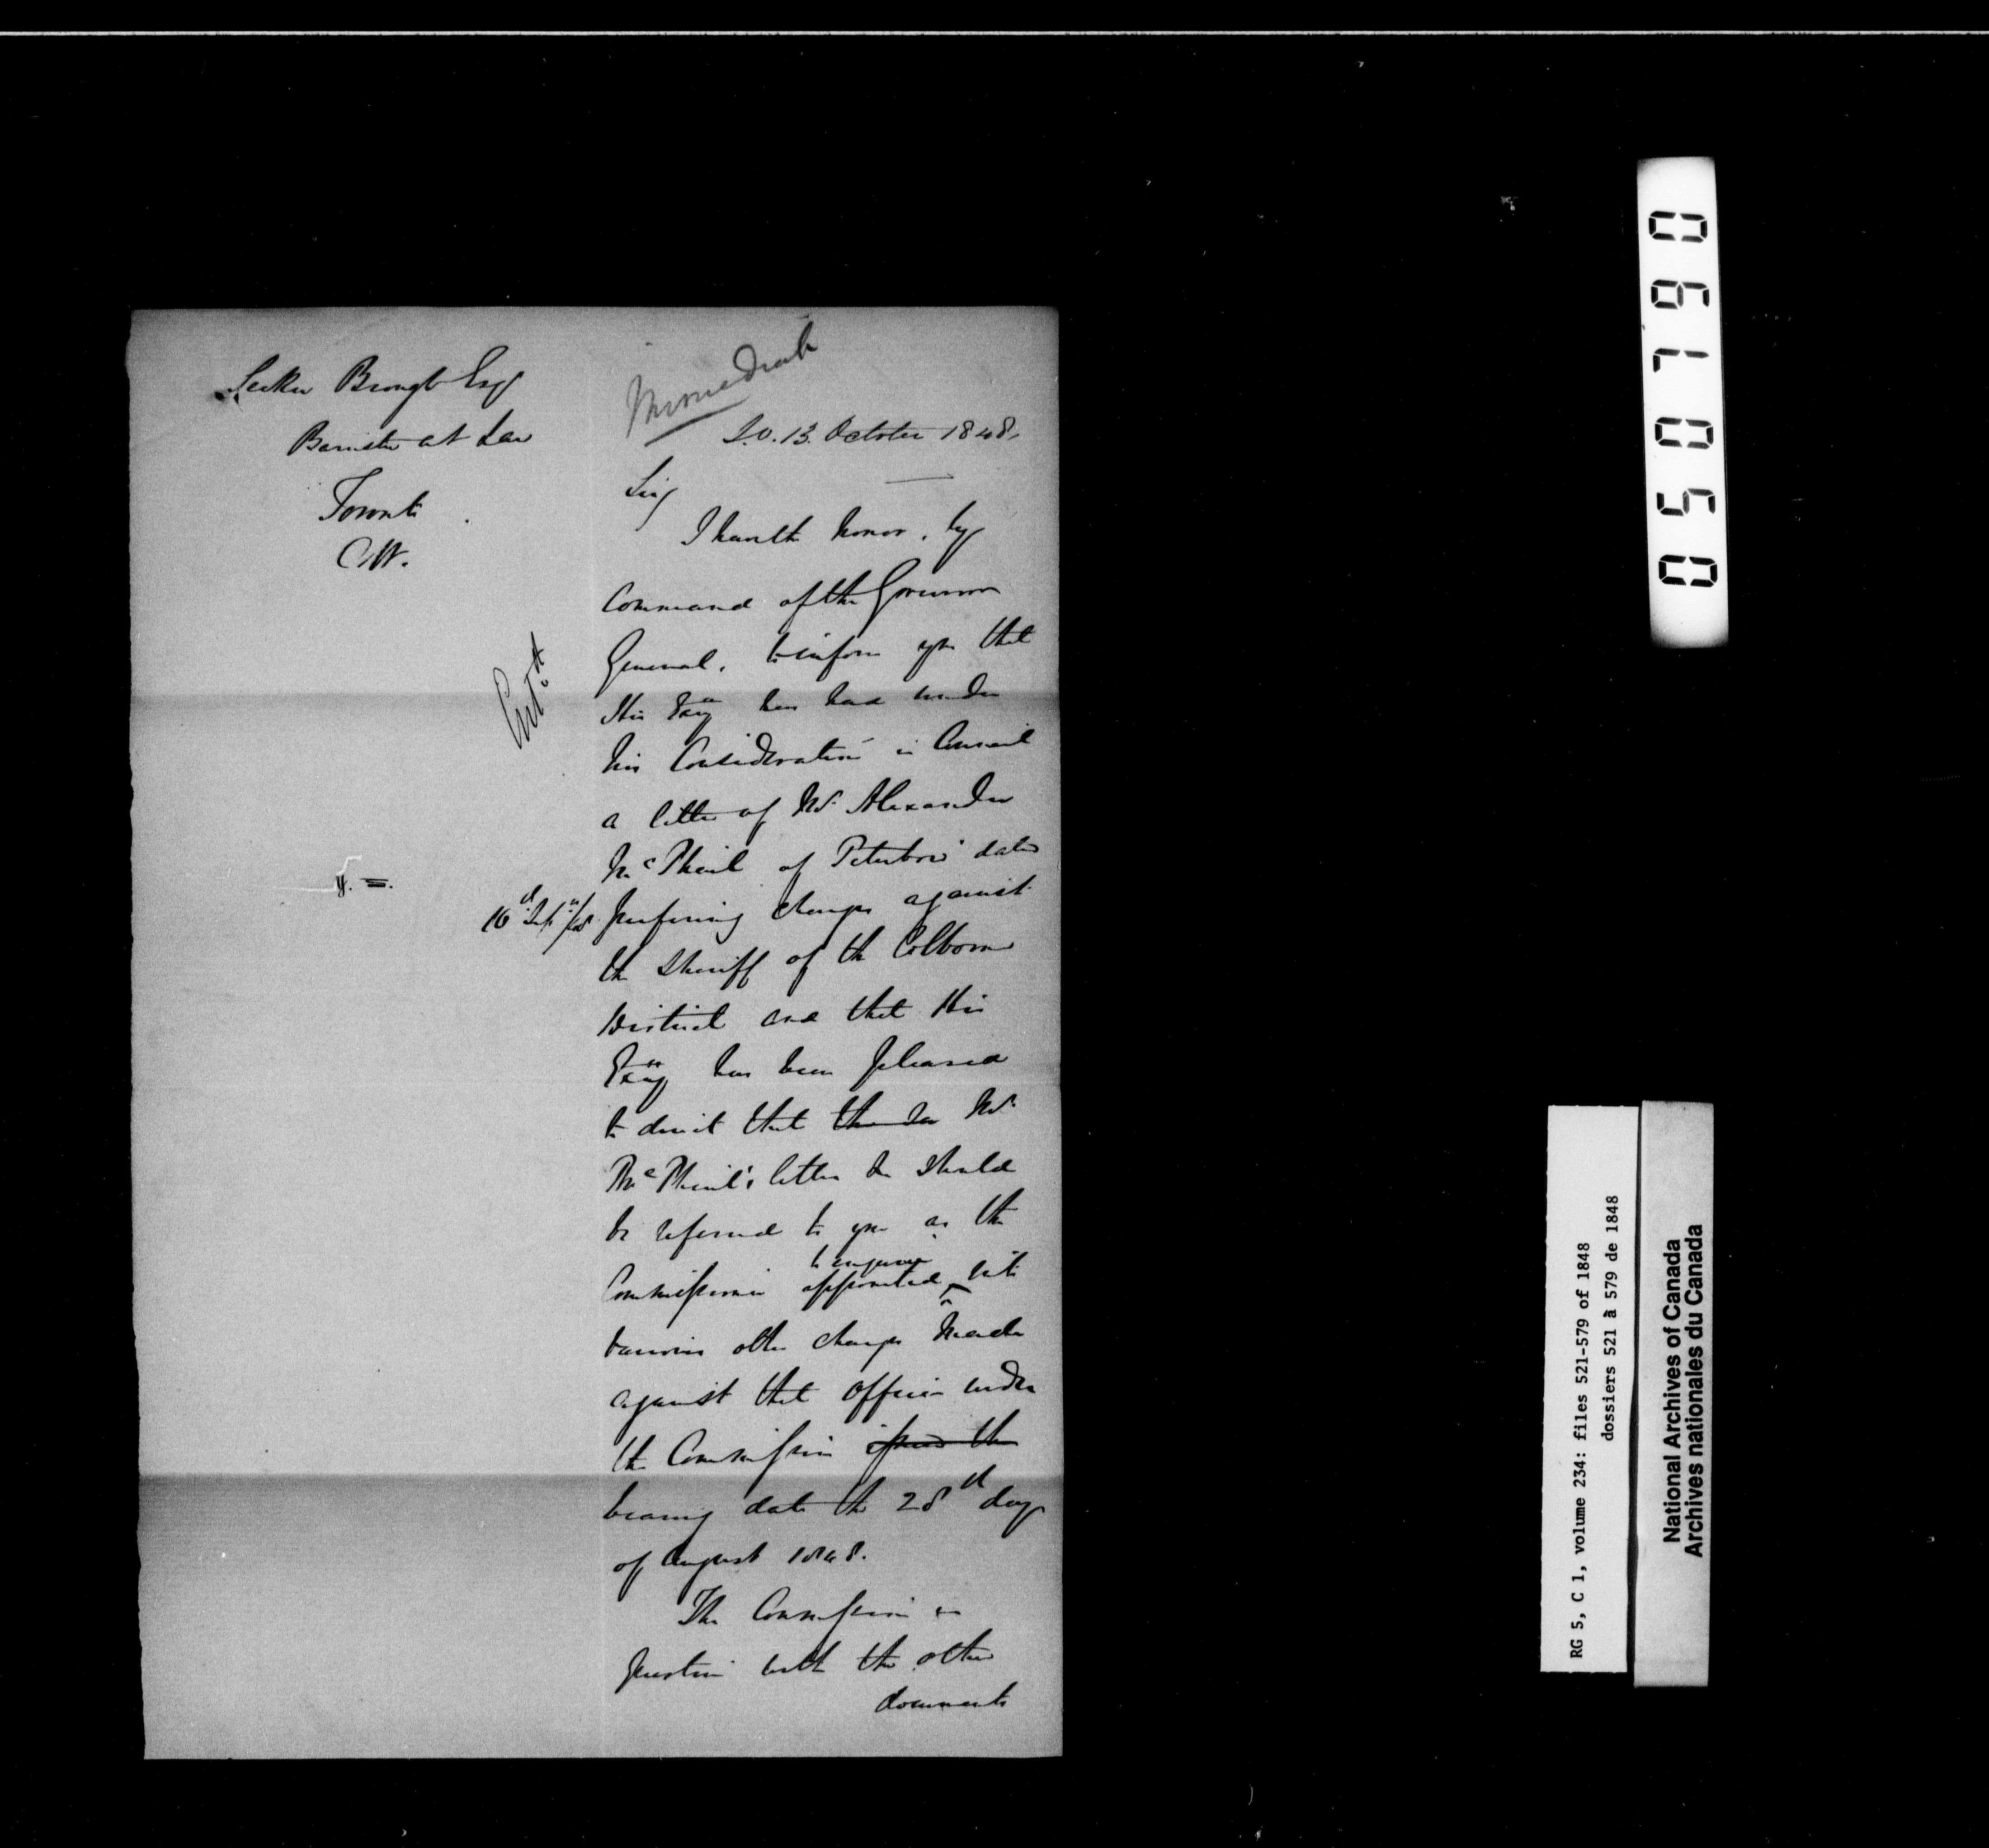 Secker Brough Esqr
Barrister at Law
Toronto
C.W.
Immediate
S.O. 13. October 1848.
Sir,
I have the honor, by
Command of the Governor
General, to inform you that
His Excy has had under
his Consideration in Council
a letter of Mr. Alexander
McPhail of Peterboro' dated
16th Septr /48 preferring charges against
the Sheriff of the Colborne
District and that His
Excy has been pleased
to direct that Mr.
McPhail's letter should
be referred to you as the
Commissioner appointed to enquire into
various other charges made
against that Officer under
the Commission issued the
bearing date the 28th day
of August 1848.
The Commission in
question with the other
documents
050790
RG 5, C 1, volume 234: files 521-579 of 1848
dossiers 521 à 579 de 1848
National Archives of Canada
Archives nationales du Canada